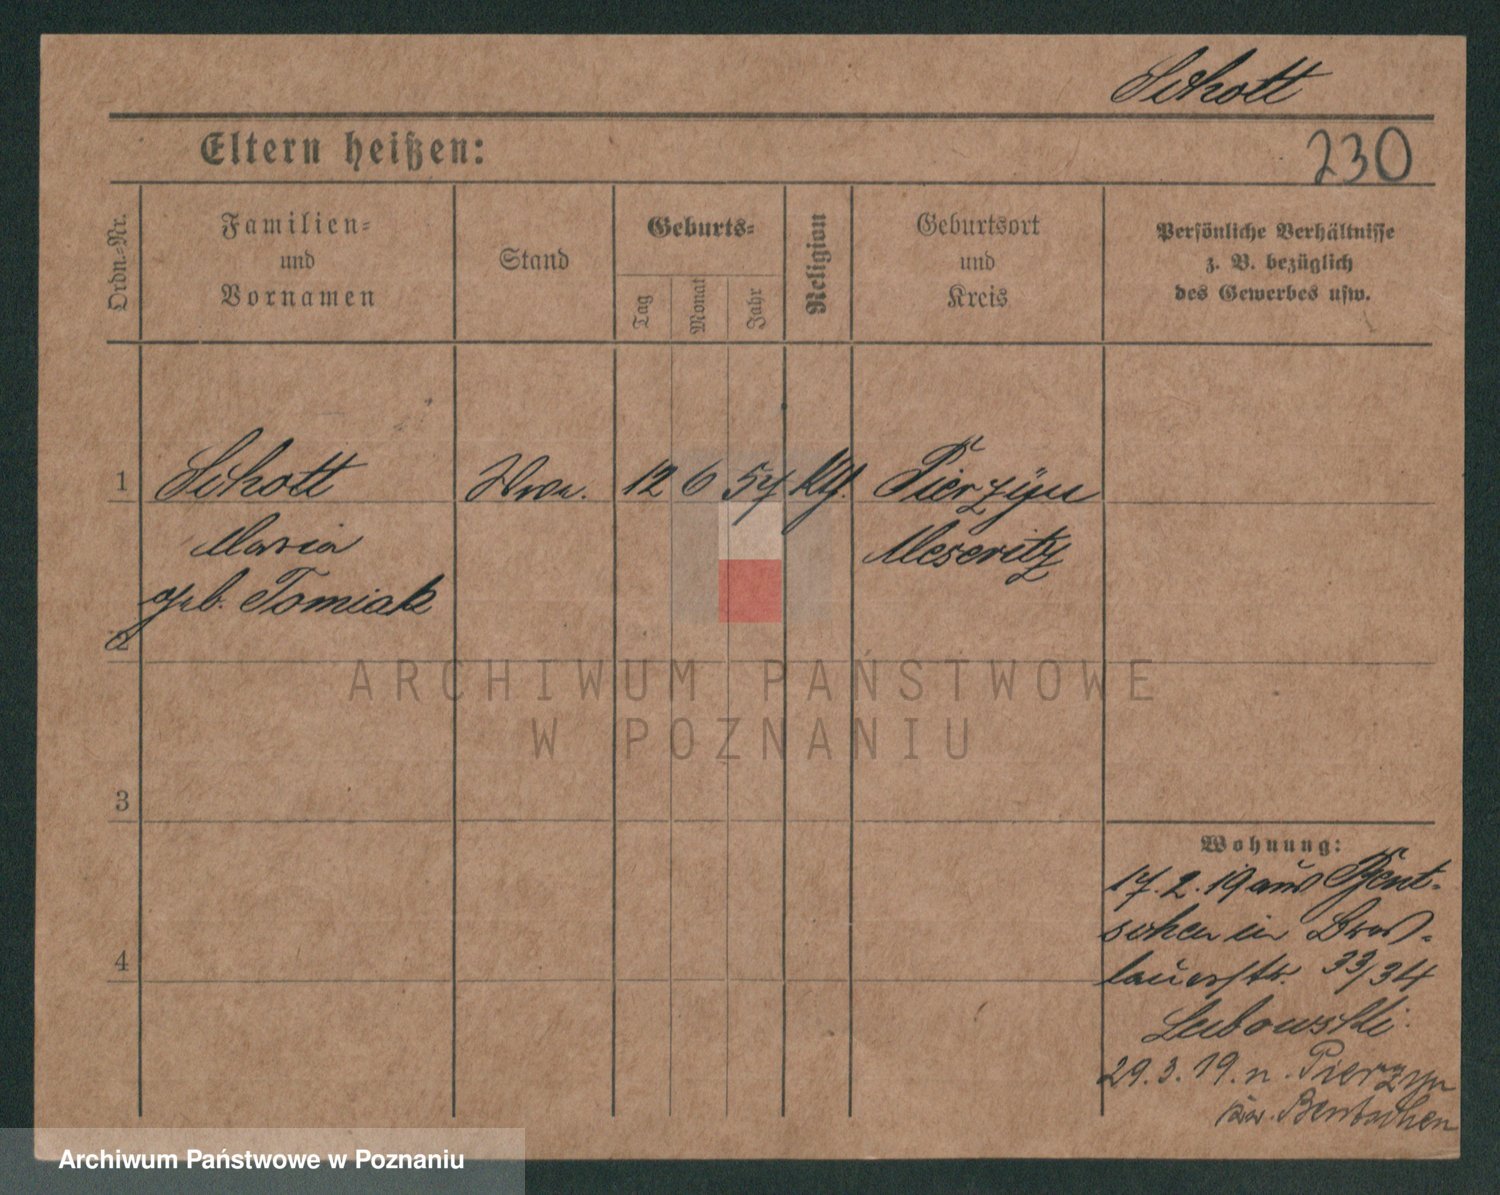 Schott
Eltern heißen:
230
Ordn.-Nr.
Familien-
und
Vornamen
Stand
Geburts-
Tag
Monat
Jahr
Religion
Geburtsort
und
Kreis
Persönliche Verhältnisse
z. B. bezüglich
des Gewerbes usw.
1
Schott
Maria
geb. Tomiak
Wwe.
12
6
54
kth.
Pierzyn
Meseritz
2
3
4
Wohnung:
17.2.19 aus Bent-
schen in Bres-
lauerstr. 33/34
29.3.19. n. Pierzyn
Bentschen
ARCHIWUM PAŃSTWOWE
W POZNANIU
Archiwum Państwowe w Poznaniu